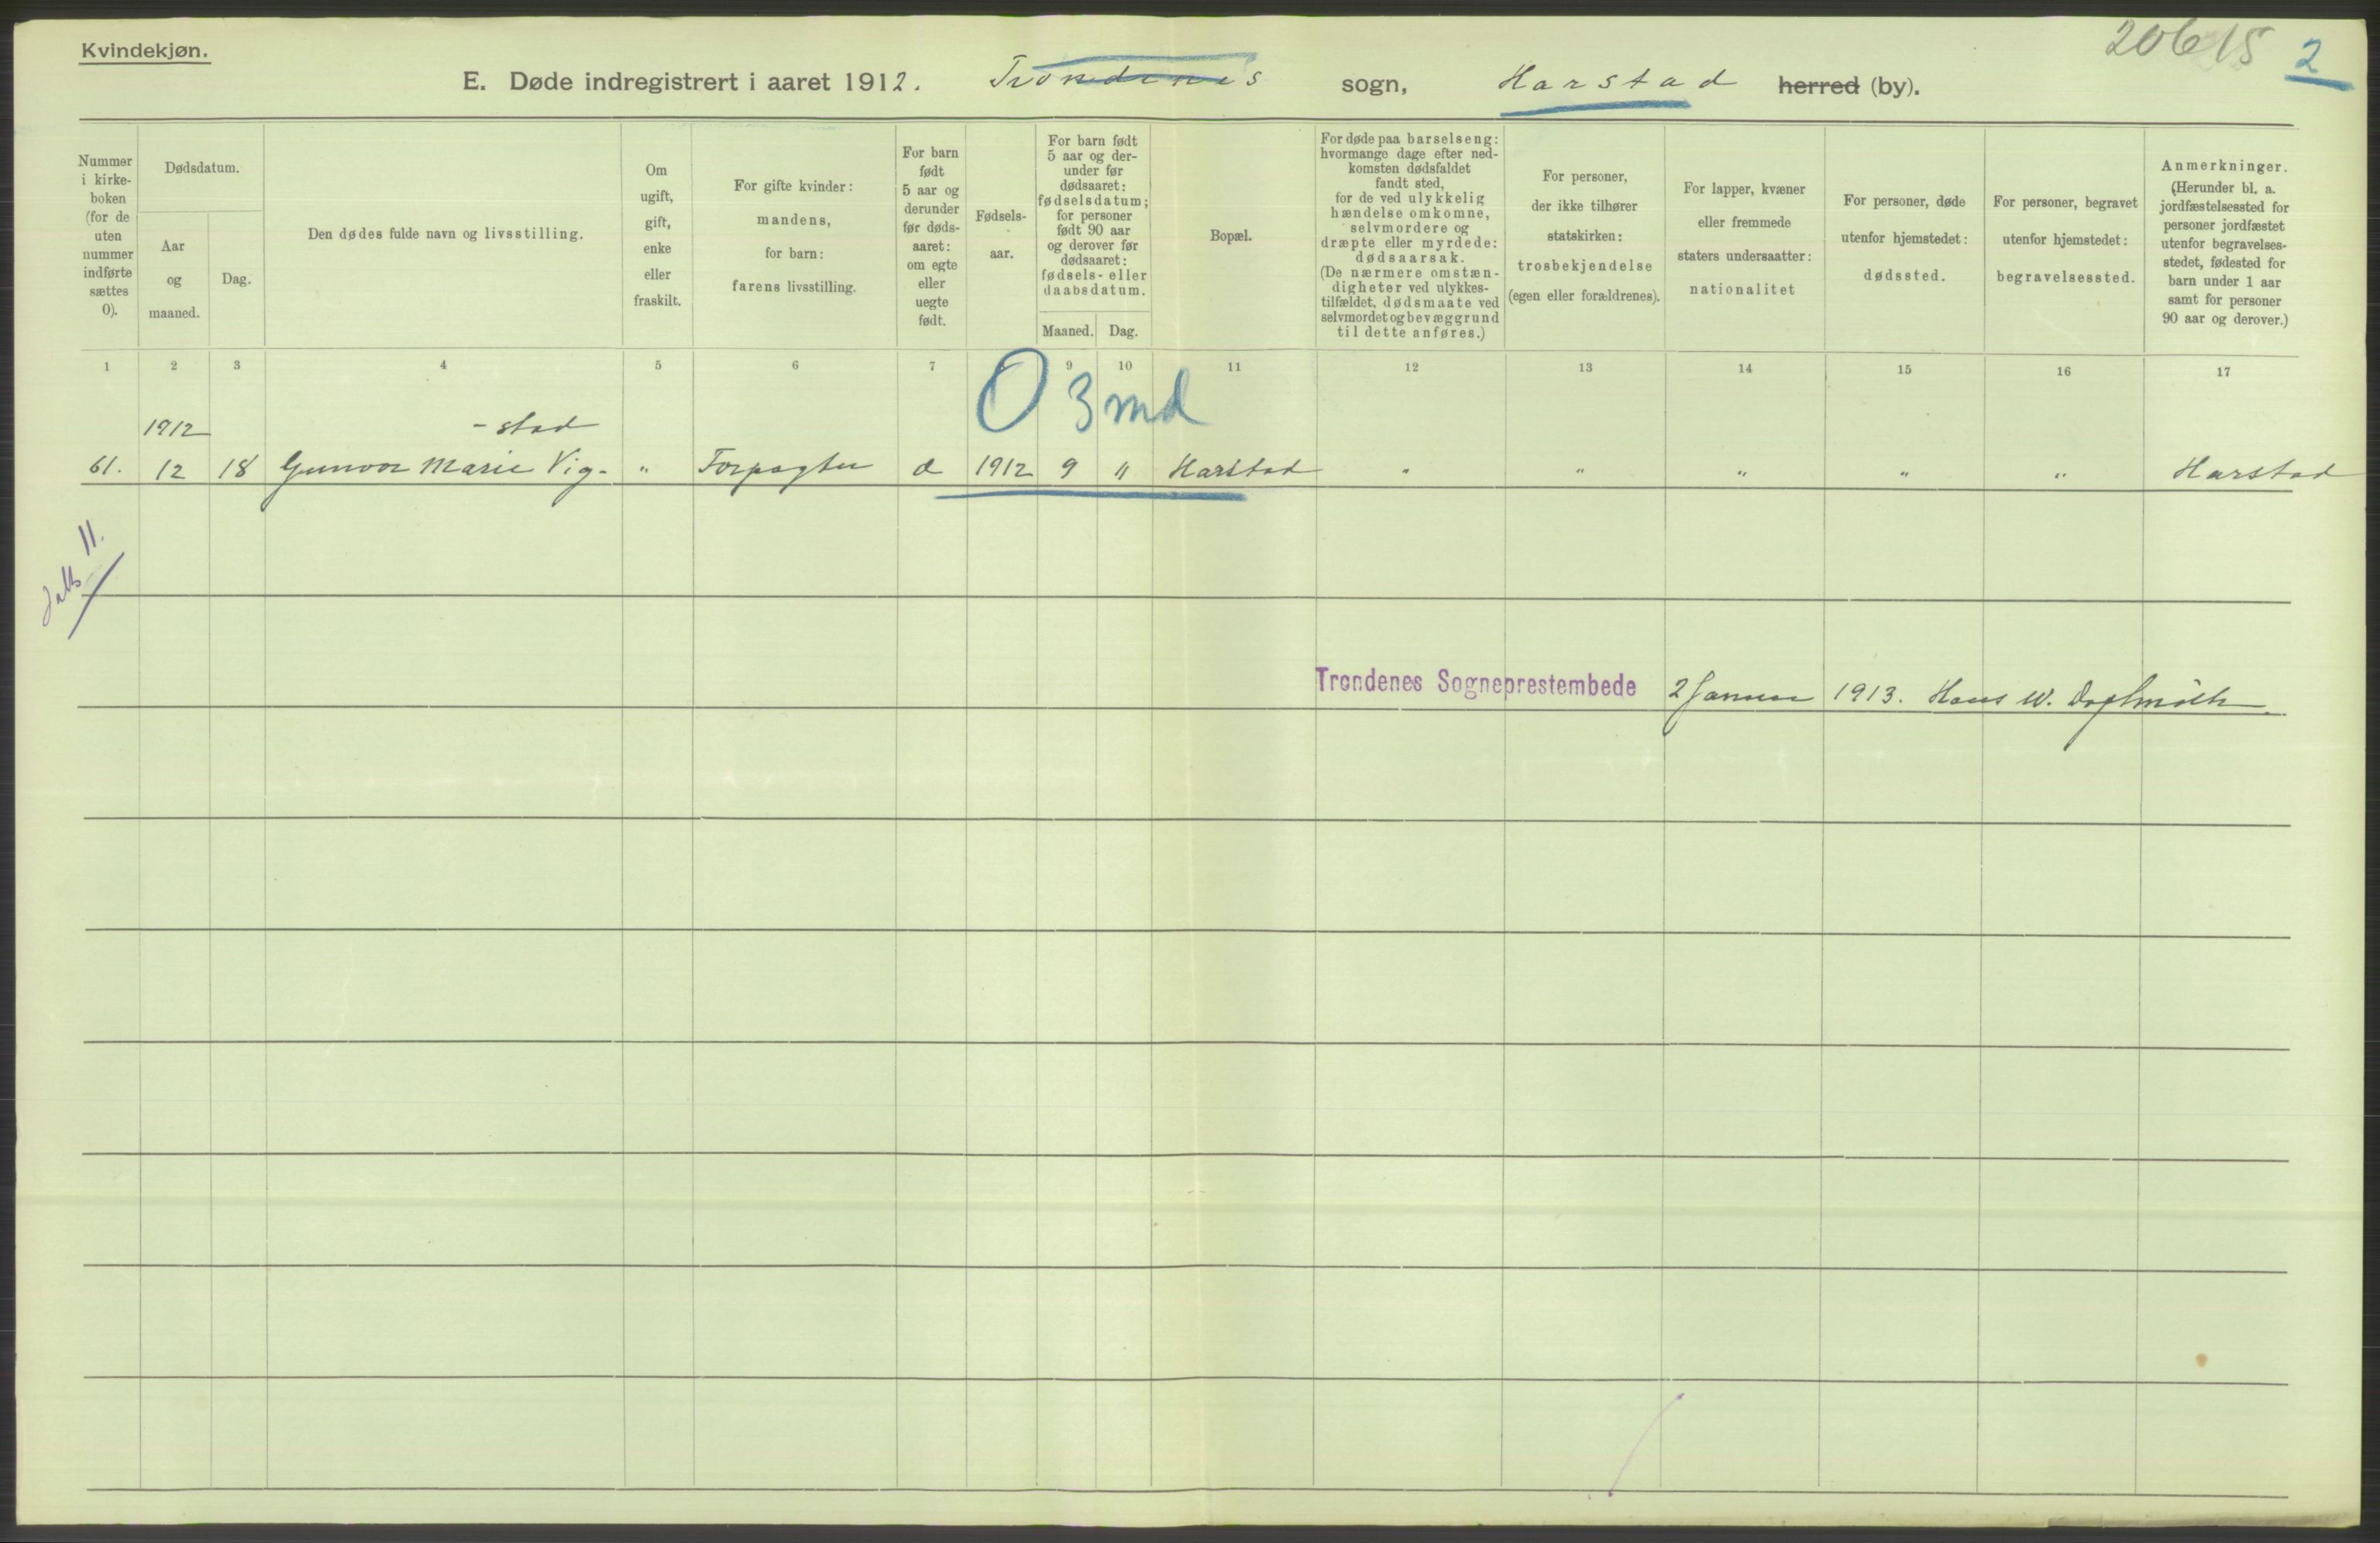 Kvindekjøn.
20615 2
E. Døde indregistrert i aaret 1912. Trondenes sogn, Harstad herred (by).
Nummer i kirke- boken (for de uten nummer indførte sættes 0).
Dødsdatum.
Aar og maaned.
Dag.
Den dødes fulde navn og livsstilling.
Om ugift, gift, enke eller fraskilt.
For gifte kvinder: mandens, for barn: farens livsstilling.
For barn født 5 aar og derunder før døds- aaret: om egte eller uegte født.
Fødsels- aar.
For barn født 5 aar og der- under før dødsaaret: fødselsdatum; for personer født 90 aar og derover før dødsaaret: fødsels- eller daabsdatum.
Maaned. Dag.
Bopæl.
For døde paa barselseng: hvormange dage efter ned- komsten dødsfaldet fandt sted, for de ved ulykkelig hændelse omkomne, selvmordere og dræpte eller myrdede: dødsaarsak. (De nærmere omstæn- digheter ved ulykkes- tilfældet, dødsmaate ved selvmordet og bevæggrund til dette anføres.)
For personer, der ikke tilhører statskirken: trosbekjendelse (egen eller forældrenes).
For lapper, kvæner eller fremmede staters undersaatter: nationalitet
For personer, døde utenfor hjemstedet: dødssted.
For personer, begravet utenfor hjemstedet: begravelsessted.
Anmerkninger. (Herunder bl. a. jordfæstelsessted for personer jordfæstet utenfor begravelses- stedet, fødested for barn under 1 aar samt for personer 90 aar og derover.)
1 2 3 4 5 6 7 8 9 10 11 12 13 14 15 16 17
0 3 md
1912 - stad
61. 12 18 Gunvor Marie Vig- " Forpagter d 1912 9 11 Harstad " " " " " Harstad
11.
Trondenes Sogneprestembede 2 Januar 1913. Hans W.